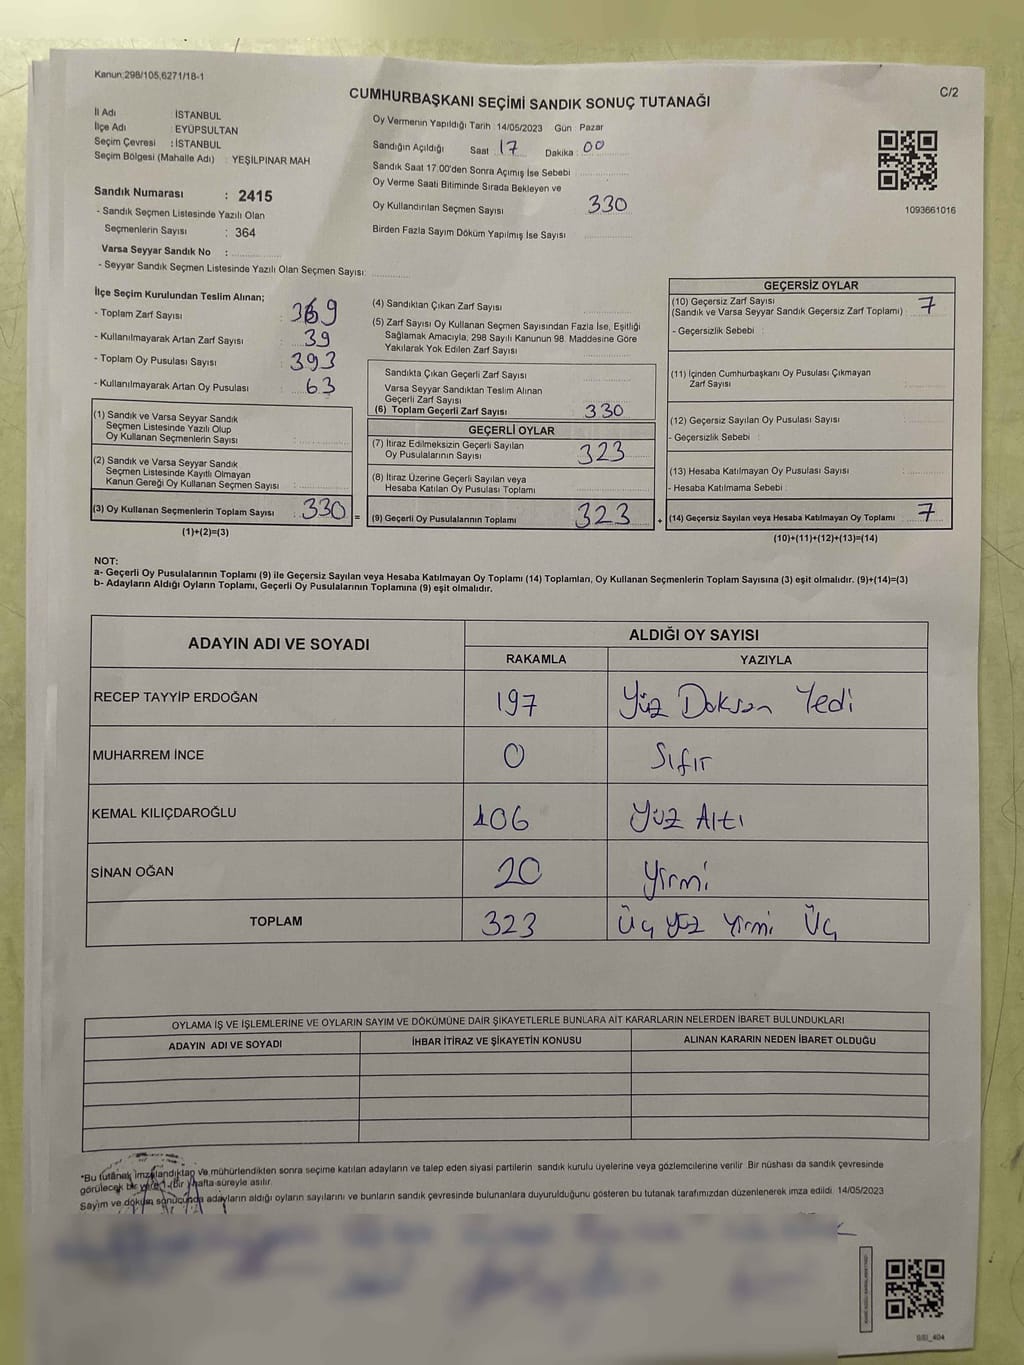 Kanun;298/105,6271/18-1
C/2
CUMHURBAŞKANI SEÇİMİ SANDIK SONUÇ TUTANAĞI
İl Adı : İSTANBUL
İlçe Adı : EYÜPSULTAN
Seçim Çevresi : İSTANBUL
Seçim Bölgesi (Mahalle Adı) : YEŞİLPINAR MAH
Sandık Numarası : 2415
- Sandık Seçmen Listesinde Yazılı Olan
Seçmenlerin Sayısı : 364
Varsa Seyyar Sandık No :
- Seyyar Sandık Seçmen Listesinde Yazılı Olan Seçmen Sayısı:
Oy Vermenin Yapıldığı Tarih : 14/05/2023 Gün Pazar
Sandığın Açıldığı Saat 17 Dakika : 00
Sandık Saat 17:00'den Sonra Açımış İse Sebebi
Oy Verme Saati Bitiminde Sırada Bekleyen ve
Oy Kullandırılan Seçmen Sayısı 330
Birden Fazla Sayım Döküm Yapılmış İse Sayısı
1093661016
İlçe Seçim Kurulundan Teslim Alınan;
- Toplam Zarf Sayısı : 369
- Kullanılmayarak Artan Zarf Sayısı : 39
- Toplam Oy Pusulası Sayısı : 393
- Kullanılmayarak Artan Oy Pusulası : 63
(1) Sandık ve Varsa Seyyar Sandık
Seçmen Listesinde Yazılı Olup
Oy Kullanan Seçmenlerin Sayısı :
(2) Sandık ve Varsa Seyyar Sandık
Seçmen Listesinde Kayıtlı Olmayan
Kanun Gereği Oy Kullanan Seçmen Sayısı :
(3) Oy Kullanan Seçmenlerin Toplam Sayısı : 330 =
(1)+(2)=(3)
(4) Sandıktan Çıkan Zarf Sayısı
(5) Zarf Sayısı Oy Kullanan Seçmen Sayısından Fazla İse, Eşitliği
Sağlamak Amacıyla, 298 Sayılı Kanunun 98. Maddesine Göre
Yakılarak Yok Edilen Zarf Sayısı
Sandıkta Çıkan Geçerli Zarf Sayısı
Varsa Seyyar Sandıktan Teslim Alınan
Geçerli Zarf Sayısı
(6) Toplam Geçerli Zarf Sayısı 330
GEÇERLİ OYLAR
(7) İtiraz Edilmeksizin Geçerli Sayılan
Oy Pusulalarının Sayısı 323
(8) İtiraz Üzerine Geçerli Sayılan veya
Hesaba Katılan Oy Pusulası Toplamı
(9) Geçerli Oy Pusulalarının Toplamı 323 +
GEÇERSİZ OYLAR
(10) Geçersiz Zarf Sayısı
(Sandık ve Varsa Seyyar Sandık Geçersiz Zarf Toplamı) : 7
- Geçersizlik Sebebi :
(11) İçinden Cumhurbaşkanı Oy Pusulası Çıkmayan
Zarf Sayısı :
(12) Geçersiz Sayılan Oy Pusulası Sayısı :
- Geçersizlik Sebebi :
(13) Hesaba Katılmayan Oy Pusulası Sayısı :
- Hesaba Katılmama Sebebi :
(14) Geçersiz Sayılan veya Hesaba Katılmayan Oy Toplamı : 7
(10)+(11)+(12)+(13)=(14)
NOT:
a- Geçerli Oy Pusulalarının Toplamı (9) ile Geçersiz Sayılan veya Hesaba Katılmayan Oy Toplamı (14) Toplamları, Oy Kullanan Seçmenlerin Toplam Sayısına (3) eşit olmalıdır. (9)+(14)=(3)
b- Adayların Aldığı Oyların Toplamı, Geçerli Oy Pusulalarının Toplamına (9) eşit olmalıdır.
ADAYIN ADI VE SOYADI
ALDIĞI OY SAYISI
RAKAMLA YAZIYLA
RECEP TAYYİP ERDOĞAN 197 Yüz Doksan Yedi
MUHARREM İNCE 0 Sıfır
KEMAL KILIÇDAROĞLU 106 Yüz Altı
SİNAN OĞAN 20 Yirmi
TOPLAM 323 Üç yüz yirmi Üç
OYLAMA İŞ VE İŞLEMLERİNE VE OYLARIN SAYIM VE DÖKÜMÜNE DAİR ŞİKAYETLERLE BUNLARA AİT KARARLARIN NELERDEN İBARET BULUNDUKLARI
ADAYIN ADI VE SOYADI İHBAR İTİRAZ VE ŞİKAYETİN KONUSU ALINAN KARARIN NEDEN İBARET OLDUĞU
*Bu tutanak imzalandıktan ve mühürlendikten sonra seçime katılan adayların ve talep eden siyasi partilerin sandık kurulu üyelerine veya gözlemcilerine verilir. Bir nüshası da sandık çevresinde
görülecek bir yere 1 (Bir) hafta süreyle asılır.
Sayım ve döküm sonucunda adayların aldığı oyların sayılarını ve bunların sandık çevresinde bulunanlara duyurulduğunu gösteren bu tutanak tarafımızdan düzenlenerek imza edildi. 14/05/2023